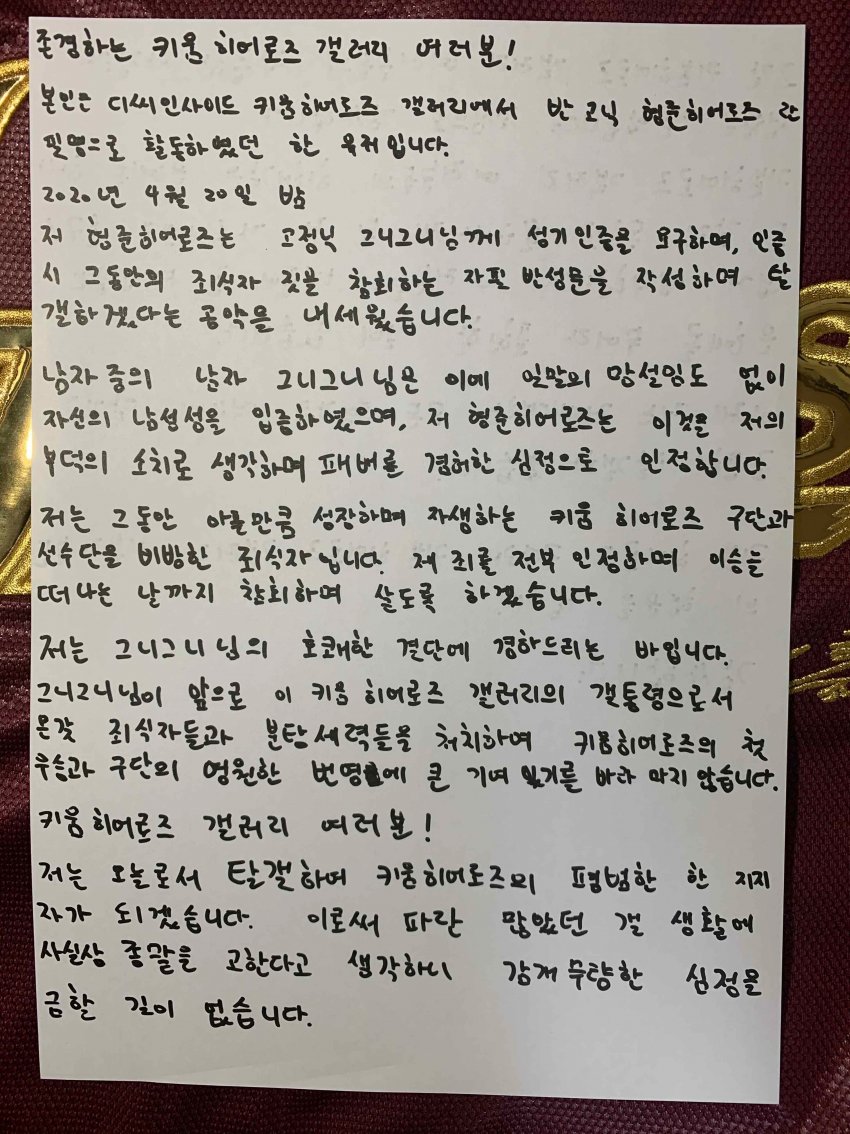 존경하는 키움 히어로즈 갤러리 여러분!
본인은 디씨인사이드 키움히어로즈 갤러리에서 반고닉 형준히어로즈 란
필명으로 활동하였던 한 유저입니다.
2020년 4월 20일 밤
저 형준히어로즈는 고정닉 그니그니님께 성기인증을 요구하며, 인증
시 그동안의 죄식자 짓을 참회하는 자필 반성문을 작성하며 탈
갤하겠다는 공약을 내세웠습니다.
남자 중의 남자 그니그니님은 이에 일말의 망설임도 없이
자신의 남성성을 입증하였으며, 저 형준히어로즈는 이것을 저의
부덕의 소치로 생각하며 패배를 겸허한 심정으로 인정합니다.
저는 그동안 아홀만큼 성장하며 자생하는 키움 히어로즈 구단과
선수단을 비방한 죄식자입니다. 제 죄를 전부 인정하며 이승을
떠나는 날까지 참회하며 살도록 하겠습니다.
저는 그니그니님의 호쾌한 결단에 경하드리는 바입니다.
그니그니님이 앞으로 이 키움 히어로즈 갤러리의 갤통령으로서
온갖 죄식자들과 분탕세력들을 처치하여 키움히어로즈의 첫
우승과 구단의 영원한 번영에 큰 기여 있기를 바라 마지 않습니다.
키움히어로즈 갤러리 여러분!
저는 오늘로서 탈갤하여 키움히어로즈의 평범한 한 지지
자가 되겠습니다. 이로써 파란 많았던 갤 생활에
사실상 종말을 고한다고 생각하니 감개 무량한 심정을
금할 길이 없습니다.
S